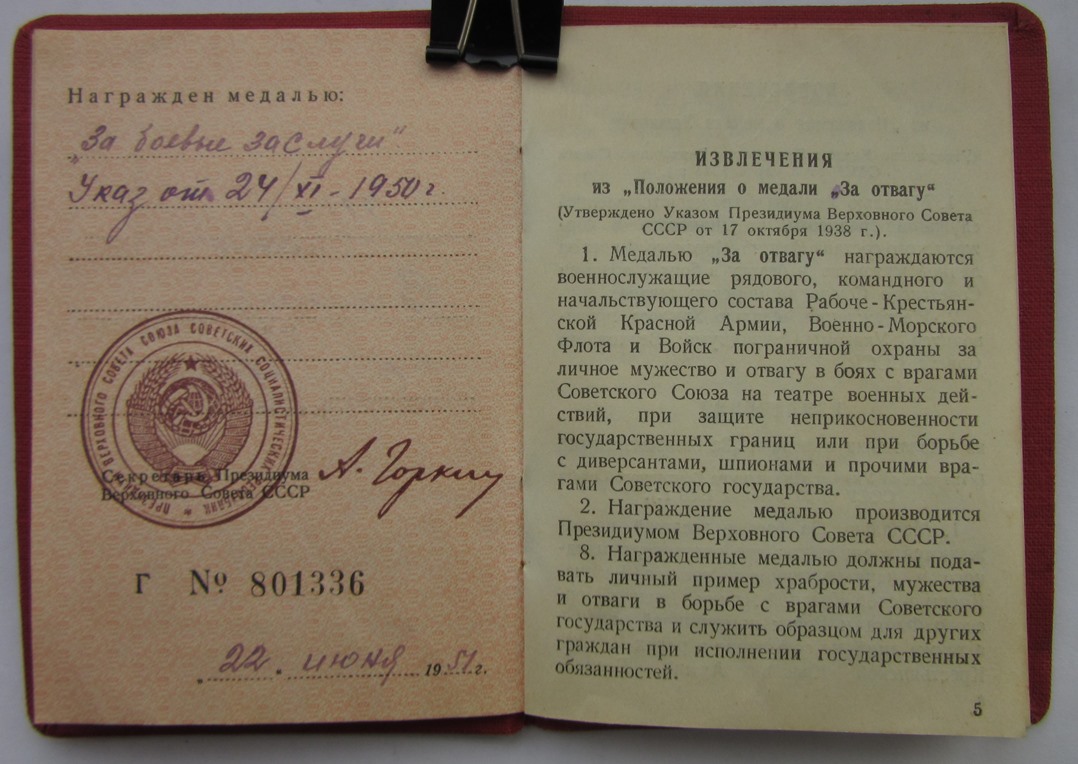 Награжден медалью:
„За боевые заслуги“
Указ от 24/XI - 1950 г.
ВЕРХОВНОГО СОВЕТА СОЮЗА СОВЕТСКИХ СОЦИАЛИСТИЧЕСКИХ
Секретарь Президиума
Верховного Совета СССР
А. Горкин
Г № 801336
22 . июня 1951 г.
ИЗВЛЕЧЕНИЯ
из „Положения о медали „За отвагу“
(Утверждено Указом Президиума Верховного Совета
СССР от 17 октября 1938 г.).
1. Медалью „За отвагу“ награждаются
военнослужащие рядового, командного и
начальствующего состава Рабоче-Крестьян-
ской Красной Армии, Военно-Морского
Флота и Войск пограничной охраны за
личное мужество и отвагу в боях с врагами
Советского Союза на театре военных дей-
ствий, при защите неприкосновенности
государственных границ или при борьбе
с диверсантами, шпионами и прочими вра-
гами Советского государства.
2. Награждение медалью производится
Президиумом Верховного Совета СССР.
8. Награжденные медалью должны пода-
вать личный пример храбрости, мужества
и отваги в борьбе с врагами Советского
государства и служить образцом для других
граждан при исполнении государственных
обязанностей.
5